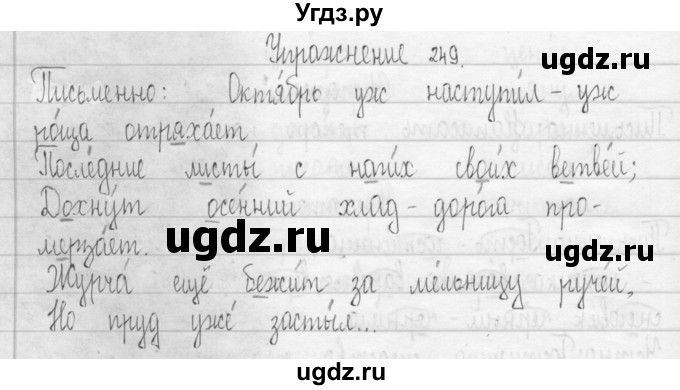 Угдз.ру
Упражнение 249.
ugdz.ru
Письменно: Октя́брь уж наступи́л - уж
ро́ща отряха́ет
ugdz.ru
После́дние листы́ с наги́х свои́х ветве́й;
Дохну́т осе́нний хлад - доро́га про-
мерза́ет.
ugdz.ru
ugdz.ru
Журча́ ещё бежи́т за ме́льницу руче́й,
Но пруд уже́ засты́л...
ugdz.ru
ugdz.ru